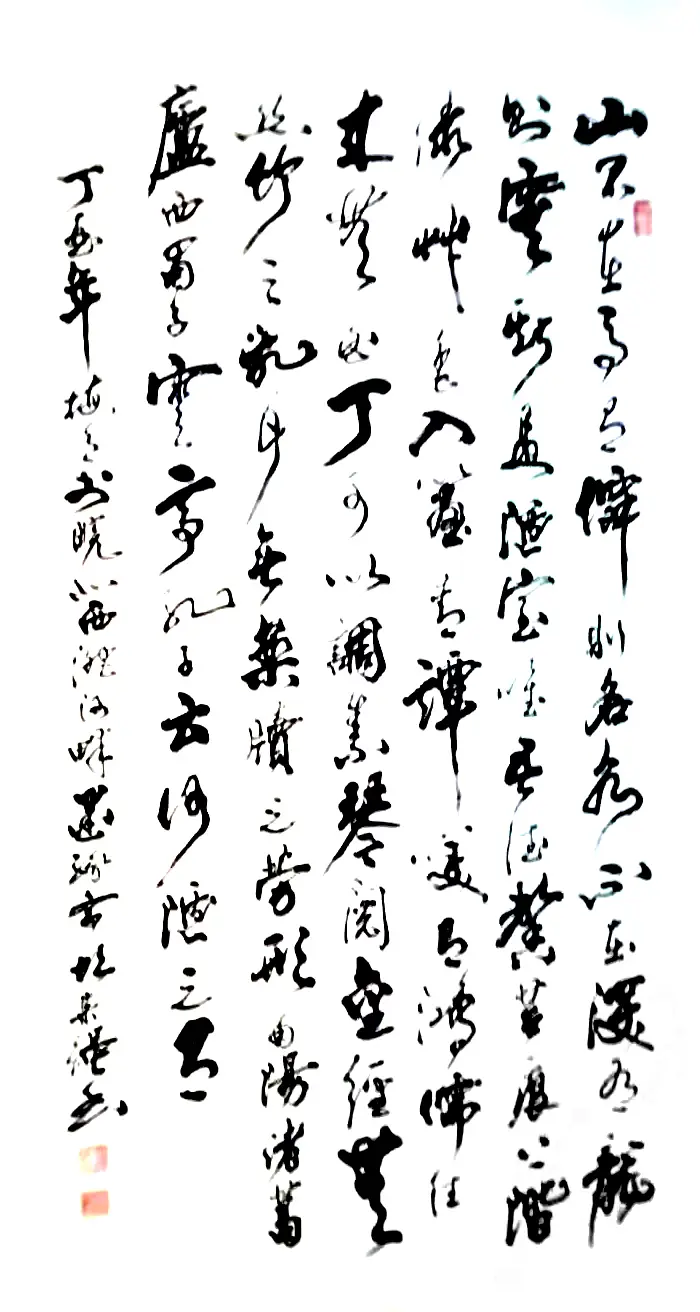 山不在高有僊則名水不在深有龍
則靈斯是陋室唯吾德馨苔痕上階
綠艸色入簾青譚笑有鴻儒往
來無白丁可以調素琴閱金經無
絲竹之亂耳無案牘之勞形南陽諸葛
廬西蜀子雲亭孔子云何陋之有
丁酉年梅月於皖北西淝河畔